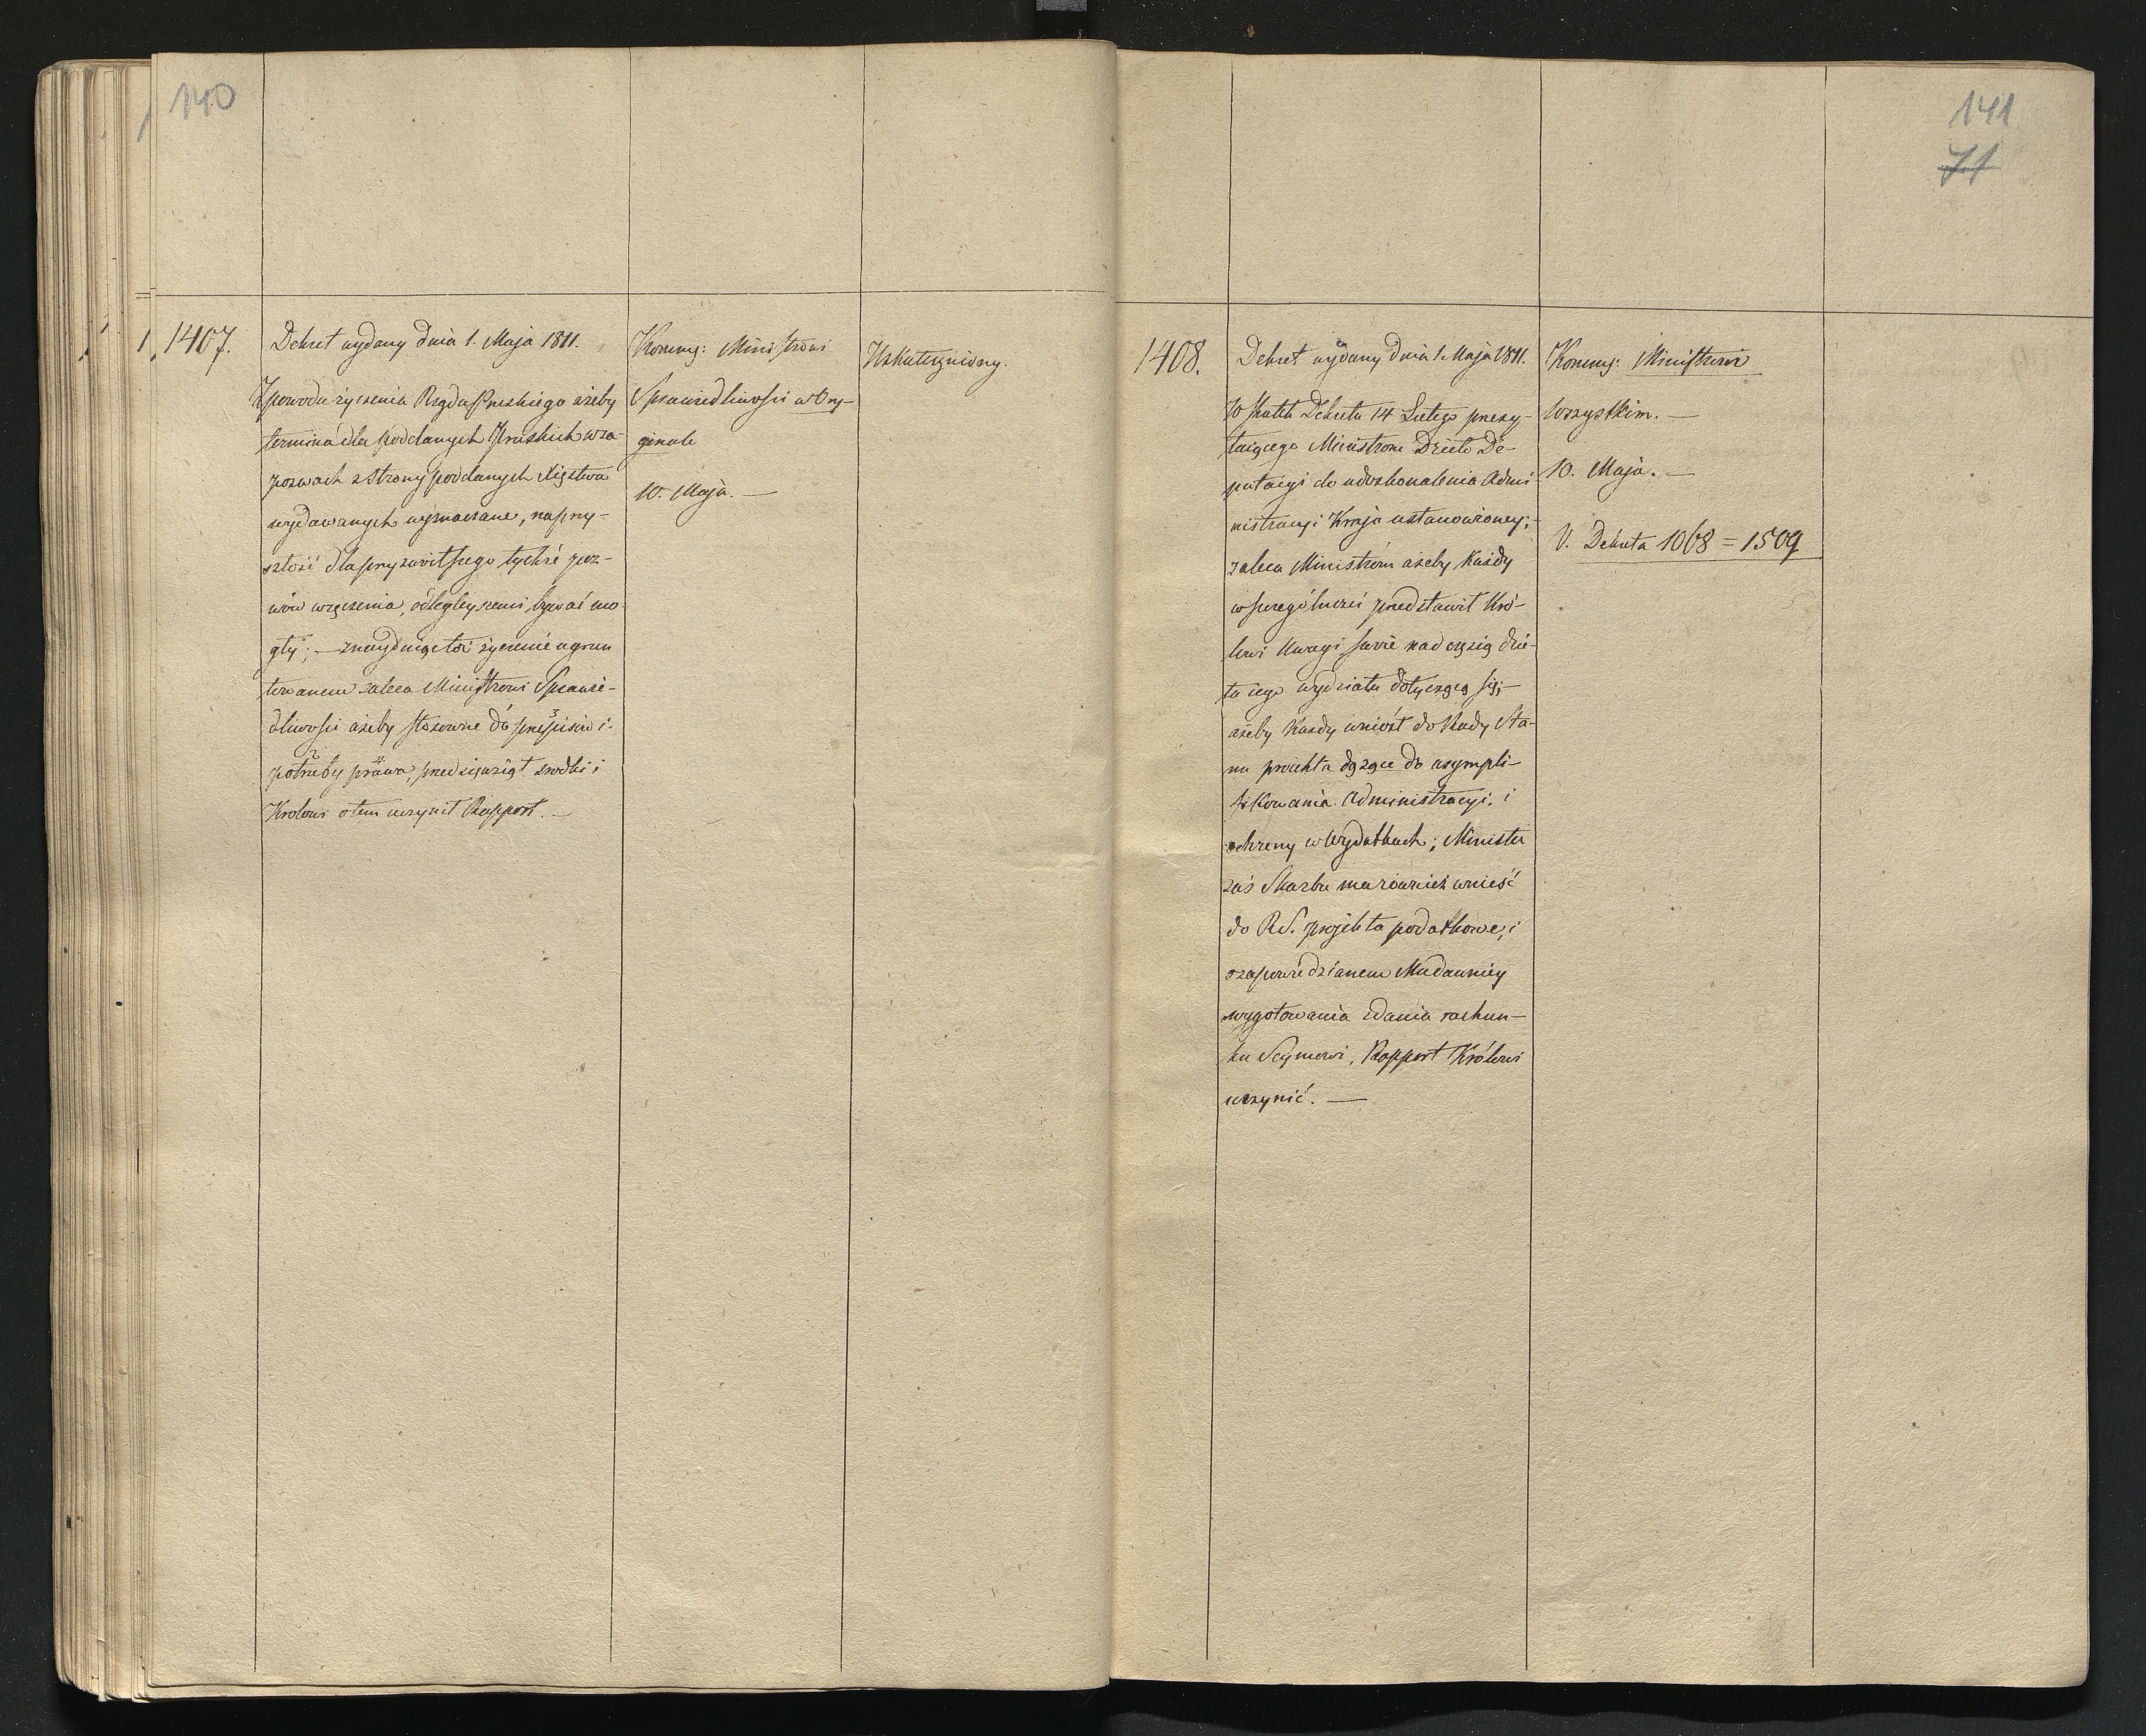 140
1407.
Dekret wydany dnia 1. Maja 1811.
Z powodu życzenia Rządu Pruskiego ażeby
termina dla poddanych Pruskich w za-
pozwach z Strony poddanych Xięstwa
wydawanych wyznaczane, na przy-
szłość dla przyzwoitszego tychże poz-
wów wręczenia, odległeyszemi bywać mo-
gły; — znayduiąc to życzenie ugrun
towanem zaleca Ministrowi Sprawie-
dliwości ażeby stosownie do przepisów i
potrzeby prawa, przedsięwziął srodki i
Krolowi o tem uczynił Rapport. —
Kommu: Ministrowi
Sprawiedliwości w Ory-
ginale
10. Maja. —
Uskuteczniony.
141
71
1408.
Dekret wydany dnia 1. Maja 1811.
W skutek Dekretu 14 Lutego przesy-
łaiącego Ministrom Dzieło De-
putacyi do udoskonalenia Admi
nistracyi Kraju ustanowioney;-
zaleca Ministrom ażeby Każdy
w szczególności przedstawił Kró-
lowi Uwagi swoie nad częścią dzie-
ła iego wydziału dotyczącą się;-
ażeby Każdy wniósł do Rady Sta-
nu proiekta dążące do usympli-
fikowania Administracyi, i
ochrony w Wydatkach; Minister
zaś Skarbu ma również wnieść
do R.S. projekta podatkowe, i
o zapowiedzianem Niedawniey
wygotowania zdania rachun-
ku Seymowi, Rapport Królowi
uczynić. —
Kommu: Ministrom
Wszystkim. —
10. Maja. —
V. Dekreta 1068 = 1509